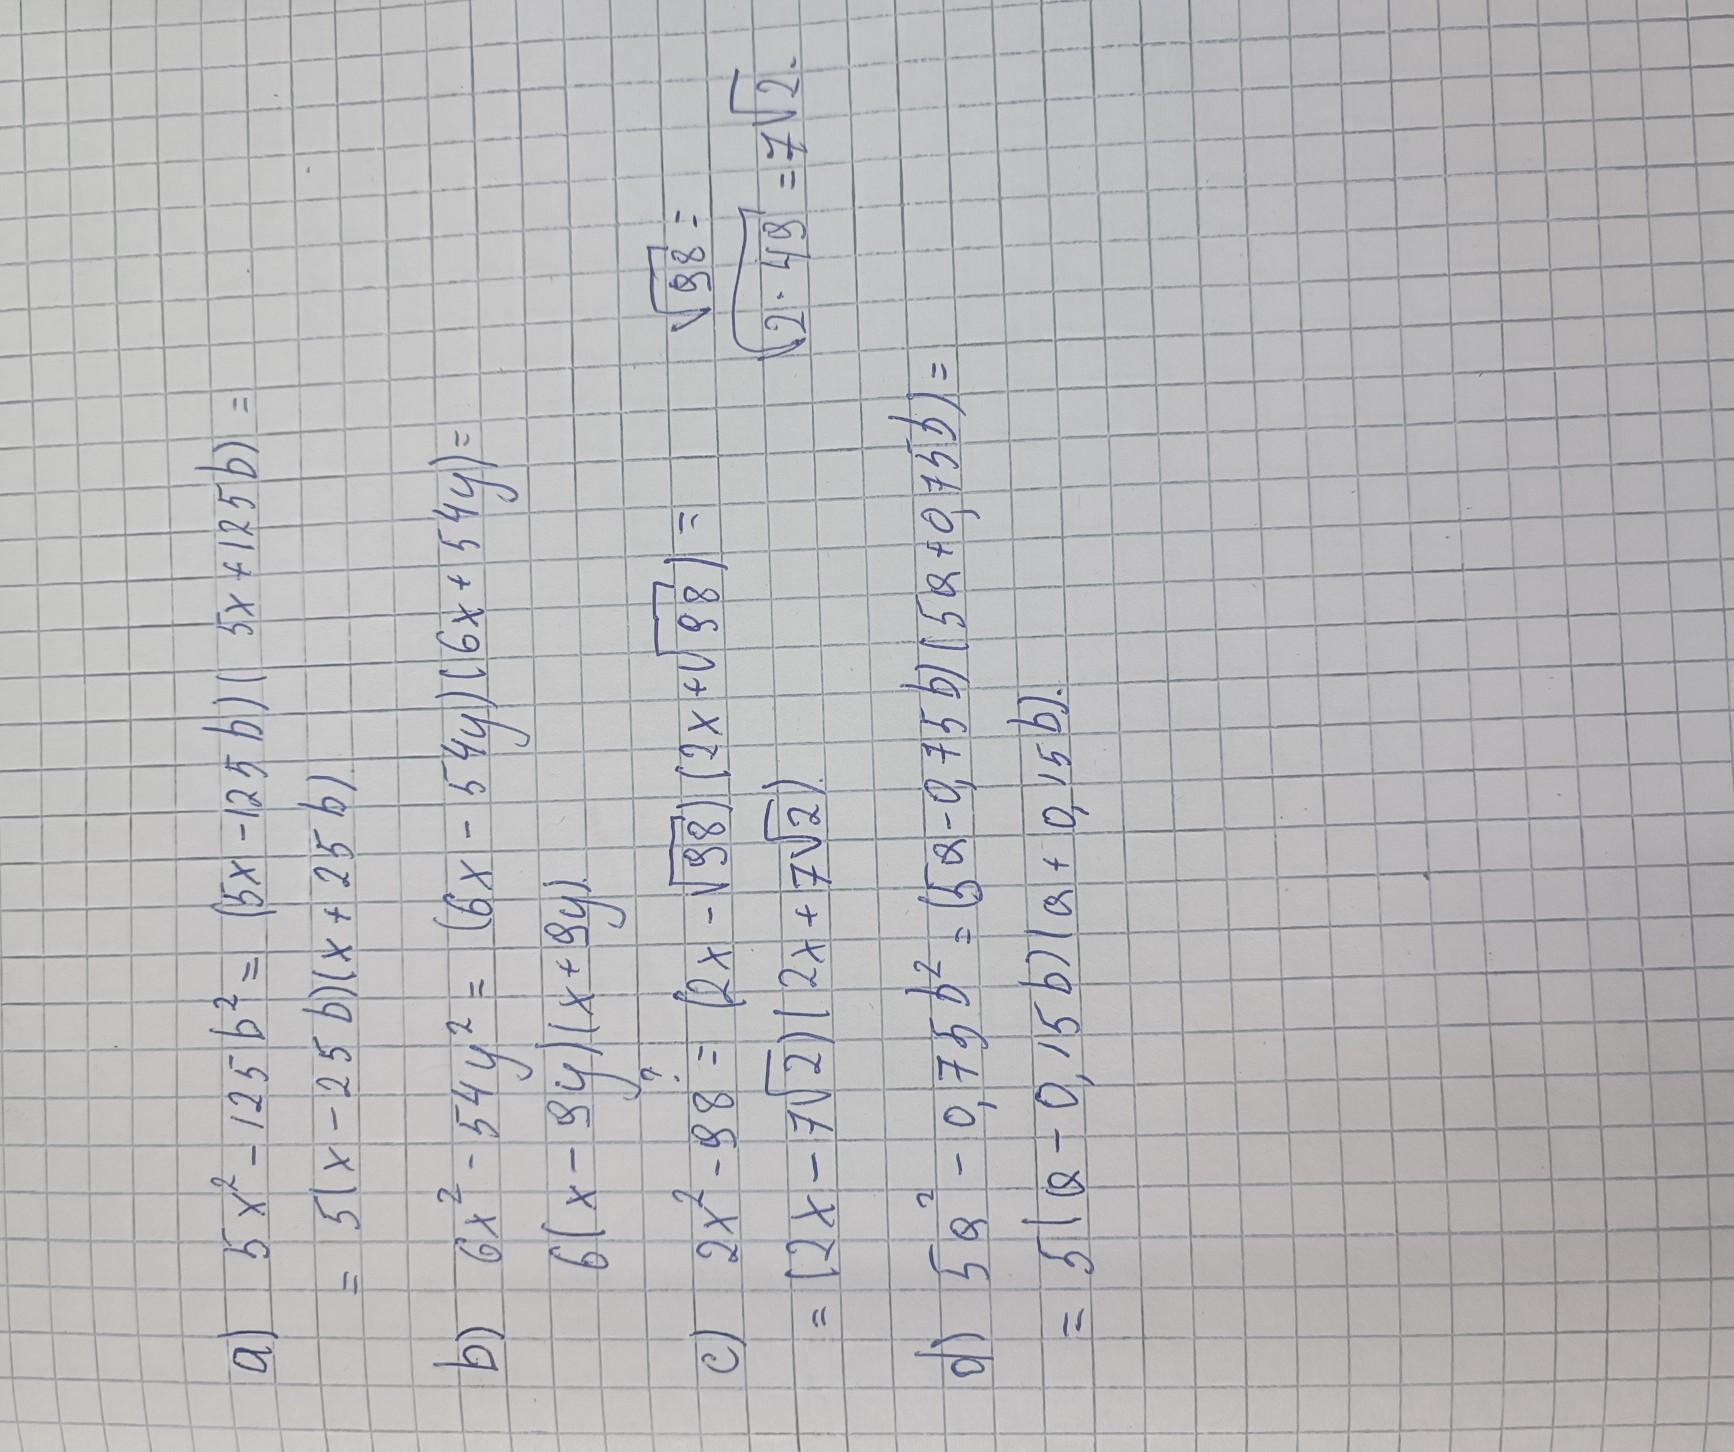 a) 5x² - 125b² = (5x - 125b)(5x + 125b) =
= 5(x - 25b)(x + 25b).
b) 6x² - 54y² = (6x - 54y)(6x + 54y) =
6(x - 9y)(x + 9y).
c) 2x² - 98 ?= (2x - √98)(2x + √98) =
√98 =
= (2x - 7√2)(2x + 7√2).
√2·49 = 7√2.
d) 5a² - 0,75b² = (5a - 0,75b)(5a + 0,75b) =
= 5(a - 0,15b)(a + 0,15b).